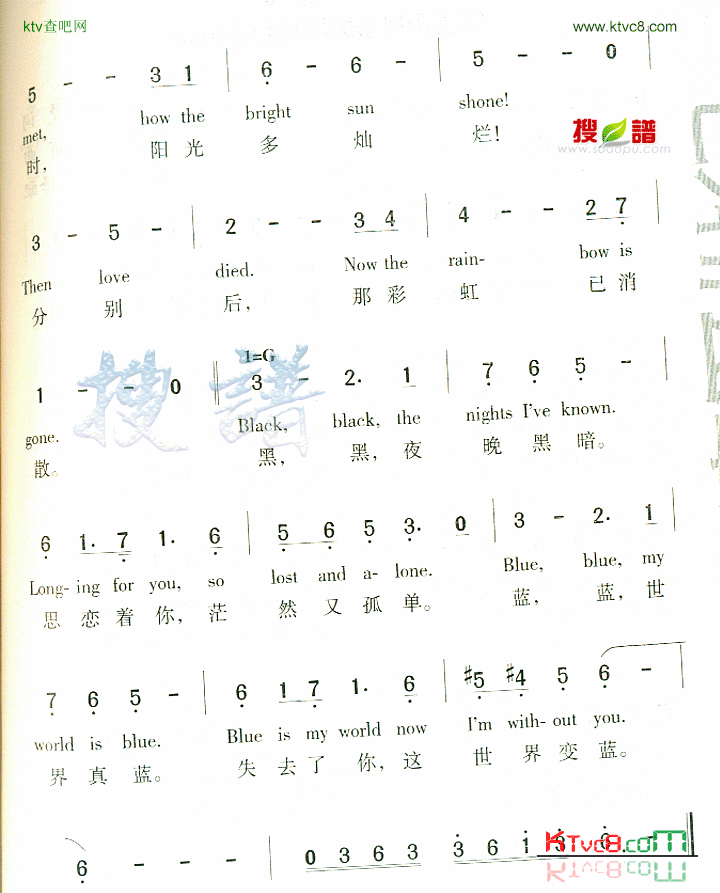 ktv查吧网 www.ktvc8.com
5 - - 3 1 | 6 - 6 - | 5 - - 0 |
met, how the bright sun shone!
时, 阳光多灿烂!
搜谱
www.sooopu.com
3 - 5 - | 2 - - 3 4 | 4 - - 2 7 |
Then love died. Now the rain- bow is
分别后, 那彩虹已消
1=G
1 - - 0 || 3 - 2· 1 | 7 6 5 - |
gone. Black, black, the nights I've known.
散。 黑, 黑, 夜晚黑暗。
搜谱
6 1· 7 1· 6 | 5 6 5 3· 0 | 3 - 2· 1 |
Long- ing for you, so lost and a- lone. Blue, blue, my
思恋着你, 茫然又孤单。 蓝, 蓝, 世
7 6 5 - | 6 1 7 1· 6 | #5 #4 5 6 - |
world is blue. Blue is my world now I'm with- out you.
界真蓝。 失去了你, 这世界变蓝。
6 - - - | 0 3 6 3 3 6 1 3 6 - ||
KTvc8.com